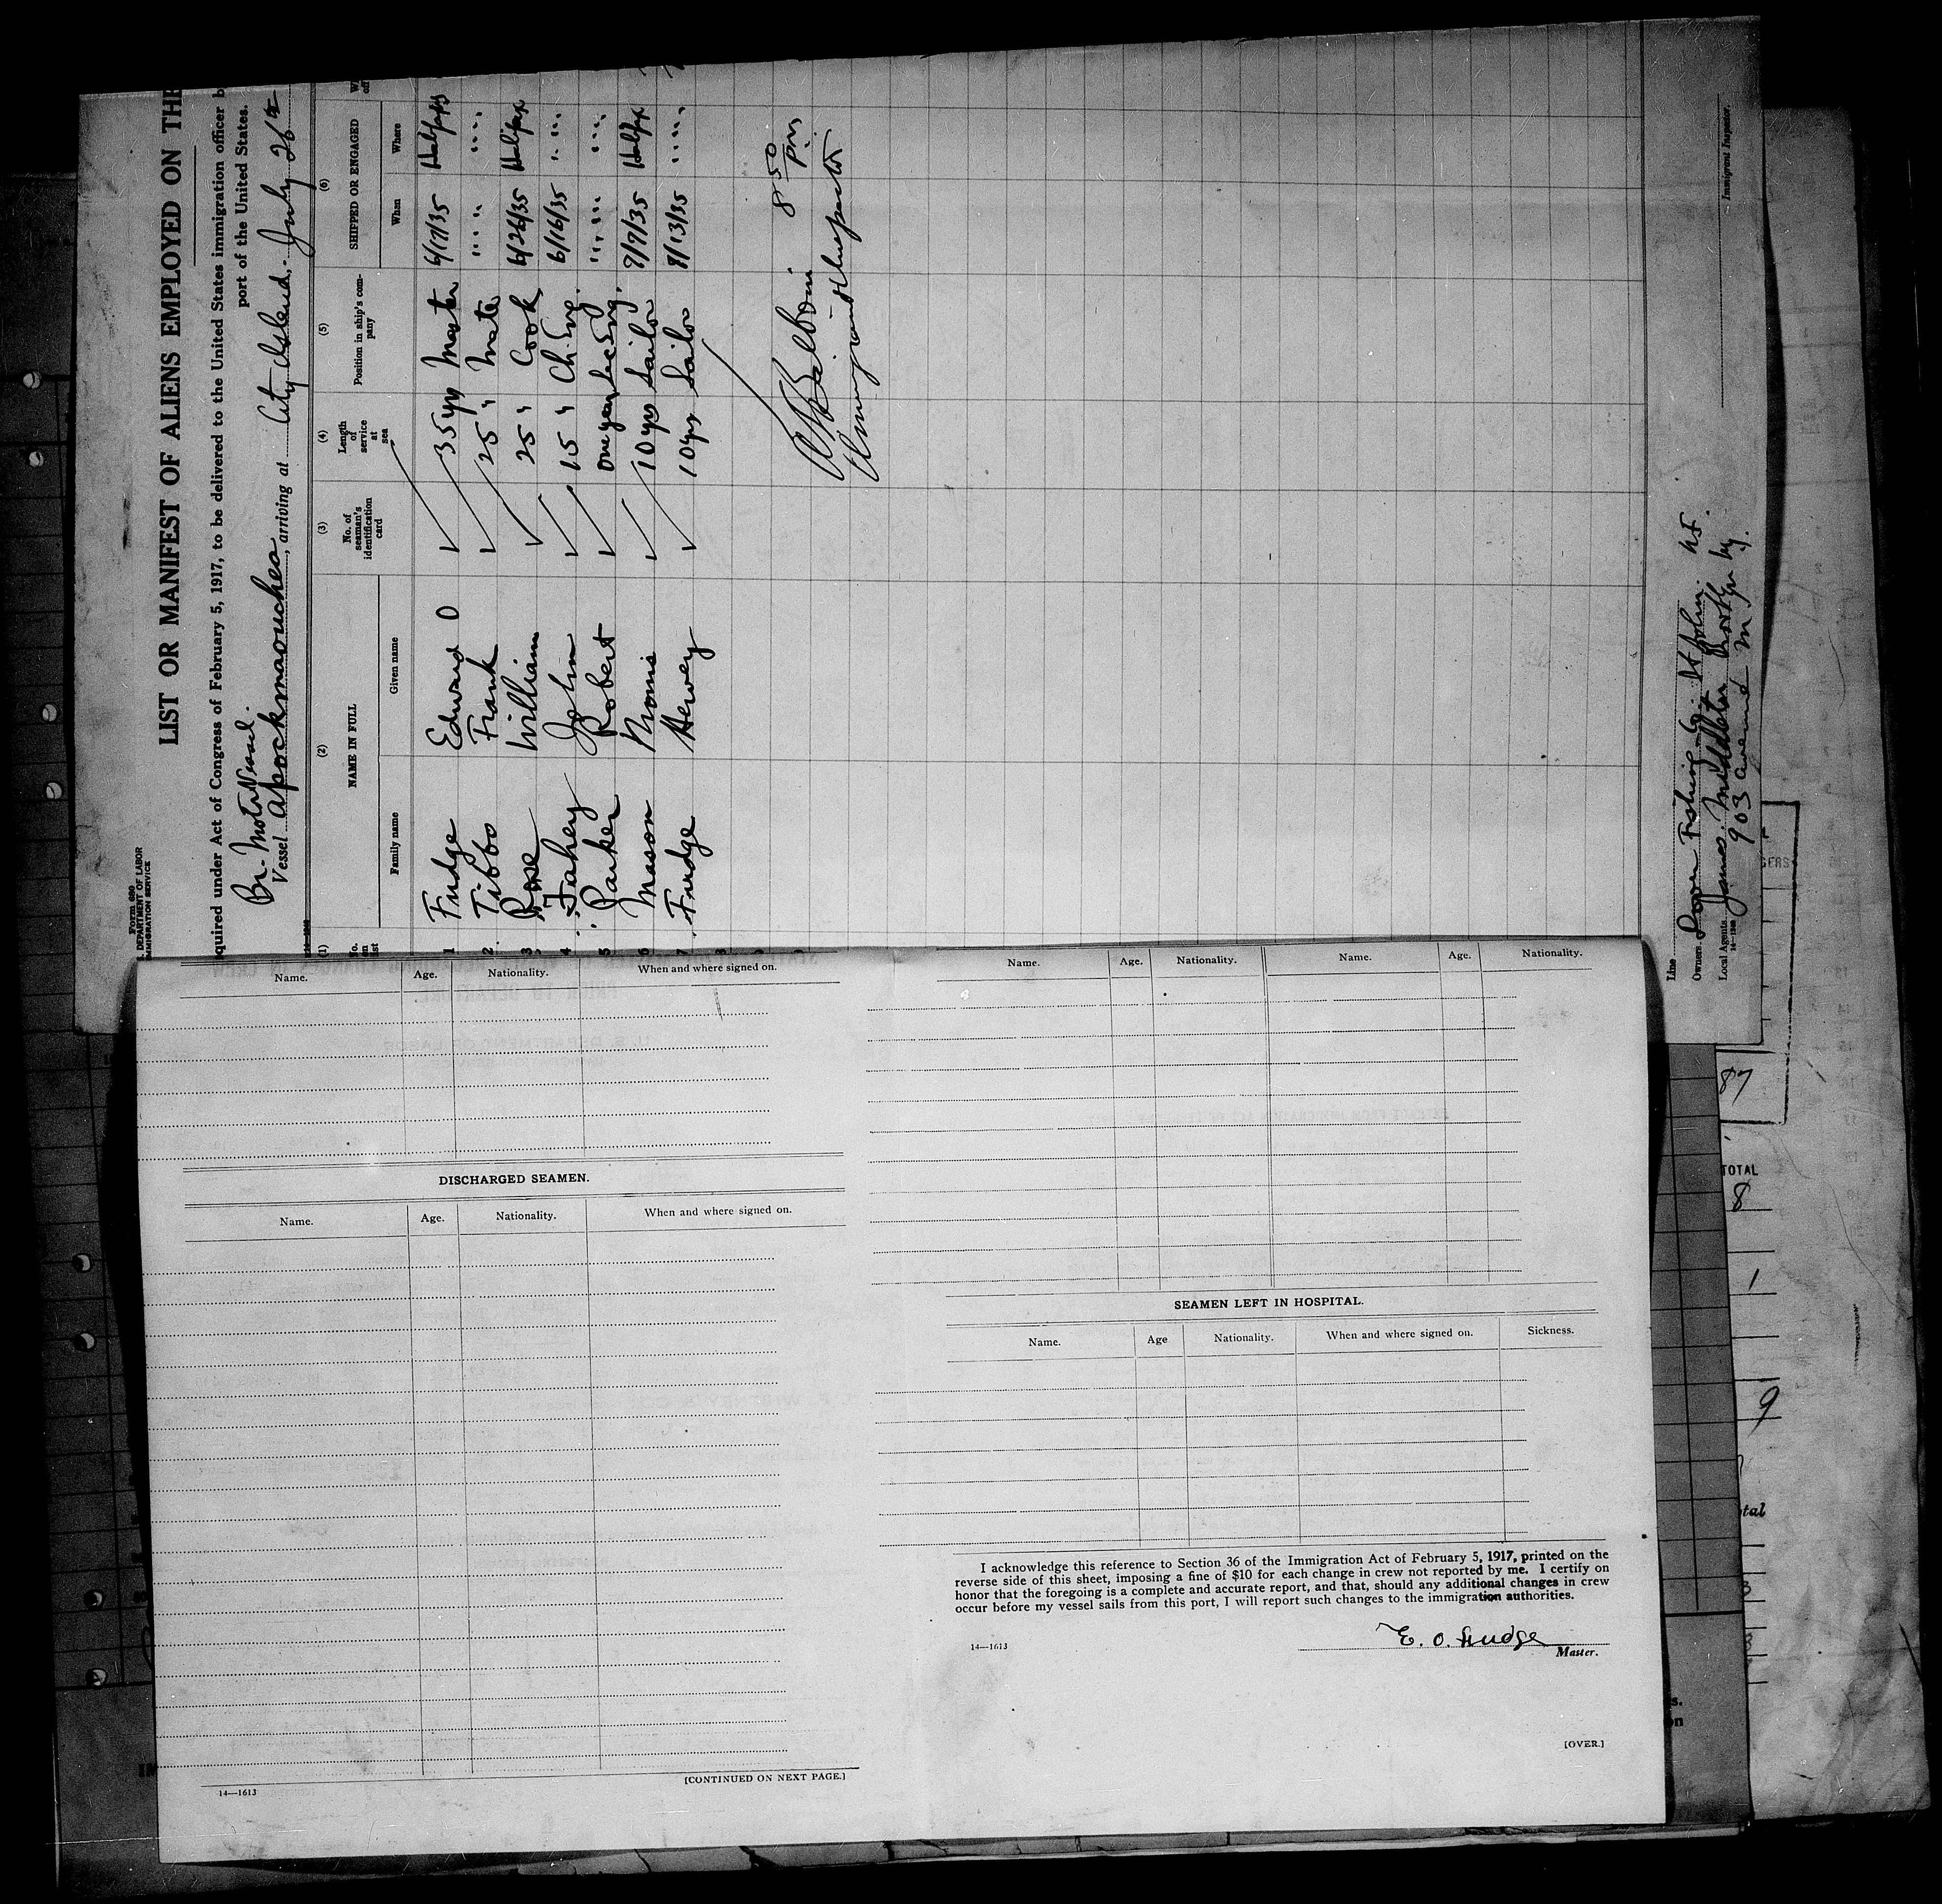 Form 680
DEPARTMENT OF LABOR
IMMIGRATION SERVICE
LIST OR MANIFEST OF ALIENS EMPLOYED ON THE
quired under Act of Congress of February 5, 1917, to be delivered to the United States immigration officer b
port of the United States.
Br. Motor Vessel.
Vessel Apockmaouchea, arriving at City Island, July 26th
(1) (2) (3) (4) (5) (6)
No. on list
NAME IN FULL
Family name Given name
No. of seaman's identification card
Length of service at sea
Position in ship's company
SHIPPED OR ENGAGED
When Where
1 Fudge Edward O 35 yrs Master 6/17/35 Halifax
2 Tibbo Frank 25 " Mate " " " "
3 Rose William 25 " Cook 6/26/35 Halifax
4 Fahey John 15 " Ch. Eng. 6/16/35 " " "
5 Parker Robert one year Sec Eng. " " " "
6 Mason Morris 10 yrs Sailor 7/7/35 Halifax
7 Fudge Hervey 10 yrs Sailor 7/13/35 " " "
8
8 50 Pm
Immigrant Inspector
Line
Owners Fishing Co. St John. NF.
Local Agents James Middleton Brooklyn Ny.
903 Avenue M
Immigrant Inspector.
Name. Age. Nationality. When and where signed on.
DISCHARGED SEAMEN.
Name. Age. Nationality. When and where signed on.
14—1613
[CONTINUED ON NEXT PAGE.]
Name. Age. Nationality. Name. Age. Nationality.
SEAMEN LEFT IN HOSPITAL.
Name. Age Nationality. When and where signed on. Sickness.
I acknowledge this reference to Section 36 of the Immigration Act of February 5, 1917, printed on the
reverse side of this sheet, imposing a fine of $10 for each change in crew not reported by me. I certify on
honor that the foregoing is a complete and accurate report, and that, should any additional changes in crew
occur before my vessel sails from this port, I will report such changes to the immigration authorities.
14—1613
E. O. Fudge
Master.
[OVER.]
GERS
87
TOTAL
8
1
9